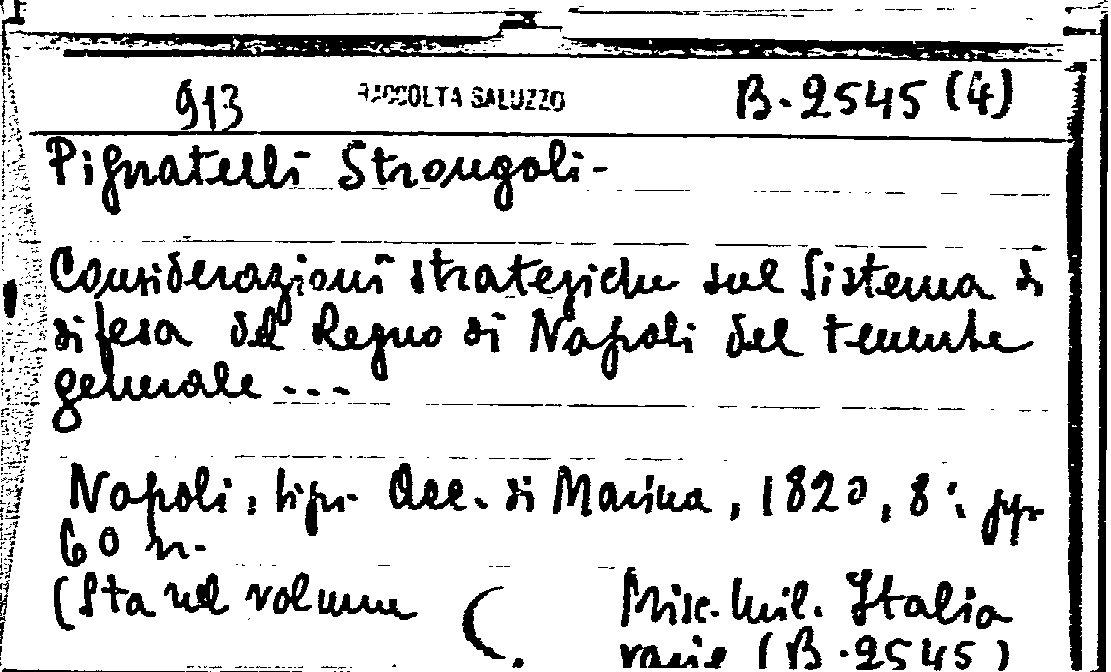 913 RACCOLTA SALUZZO B.2545 (4)
Pignatelli Strongoli-
Considerazioni strategiche sul Sistema di
difesa del Regno di Napoli del tenente
generale ---
Napoli, tipr. Acc. di Marina, 1820, 8°: pp.
60 n.
(Sta nel volume Misc. mil. Italia
varie (B.2545)